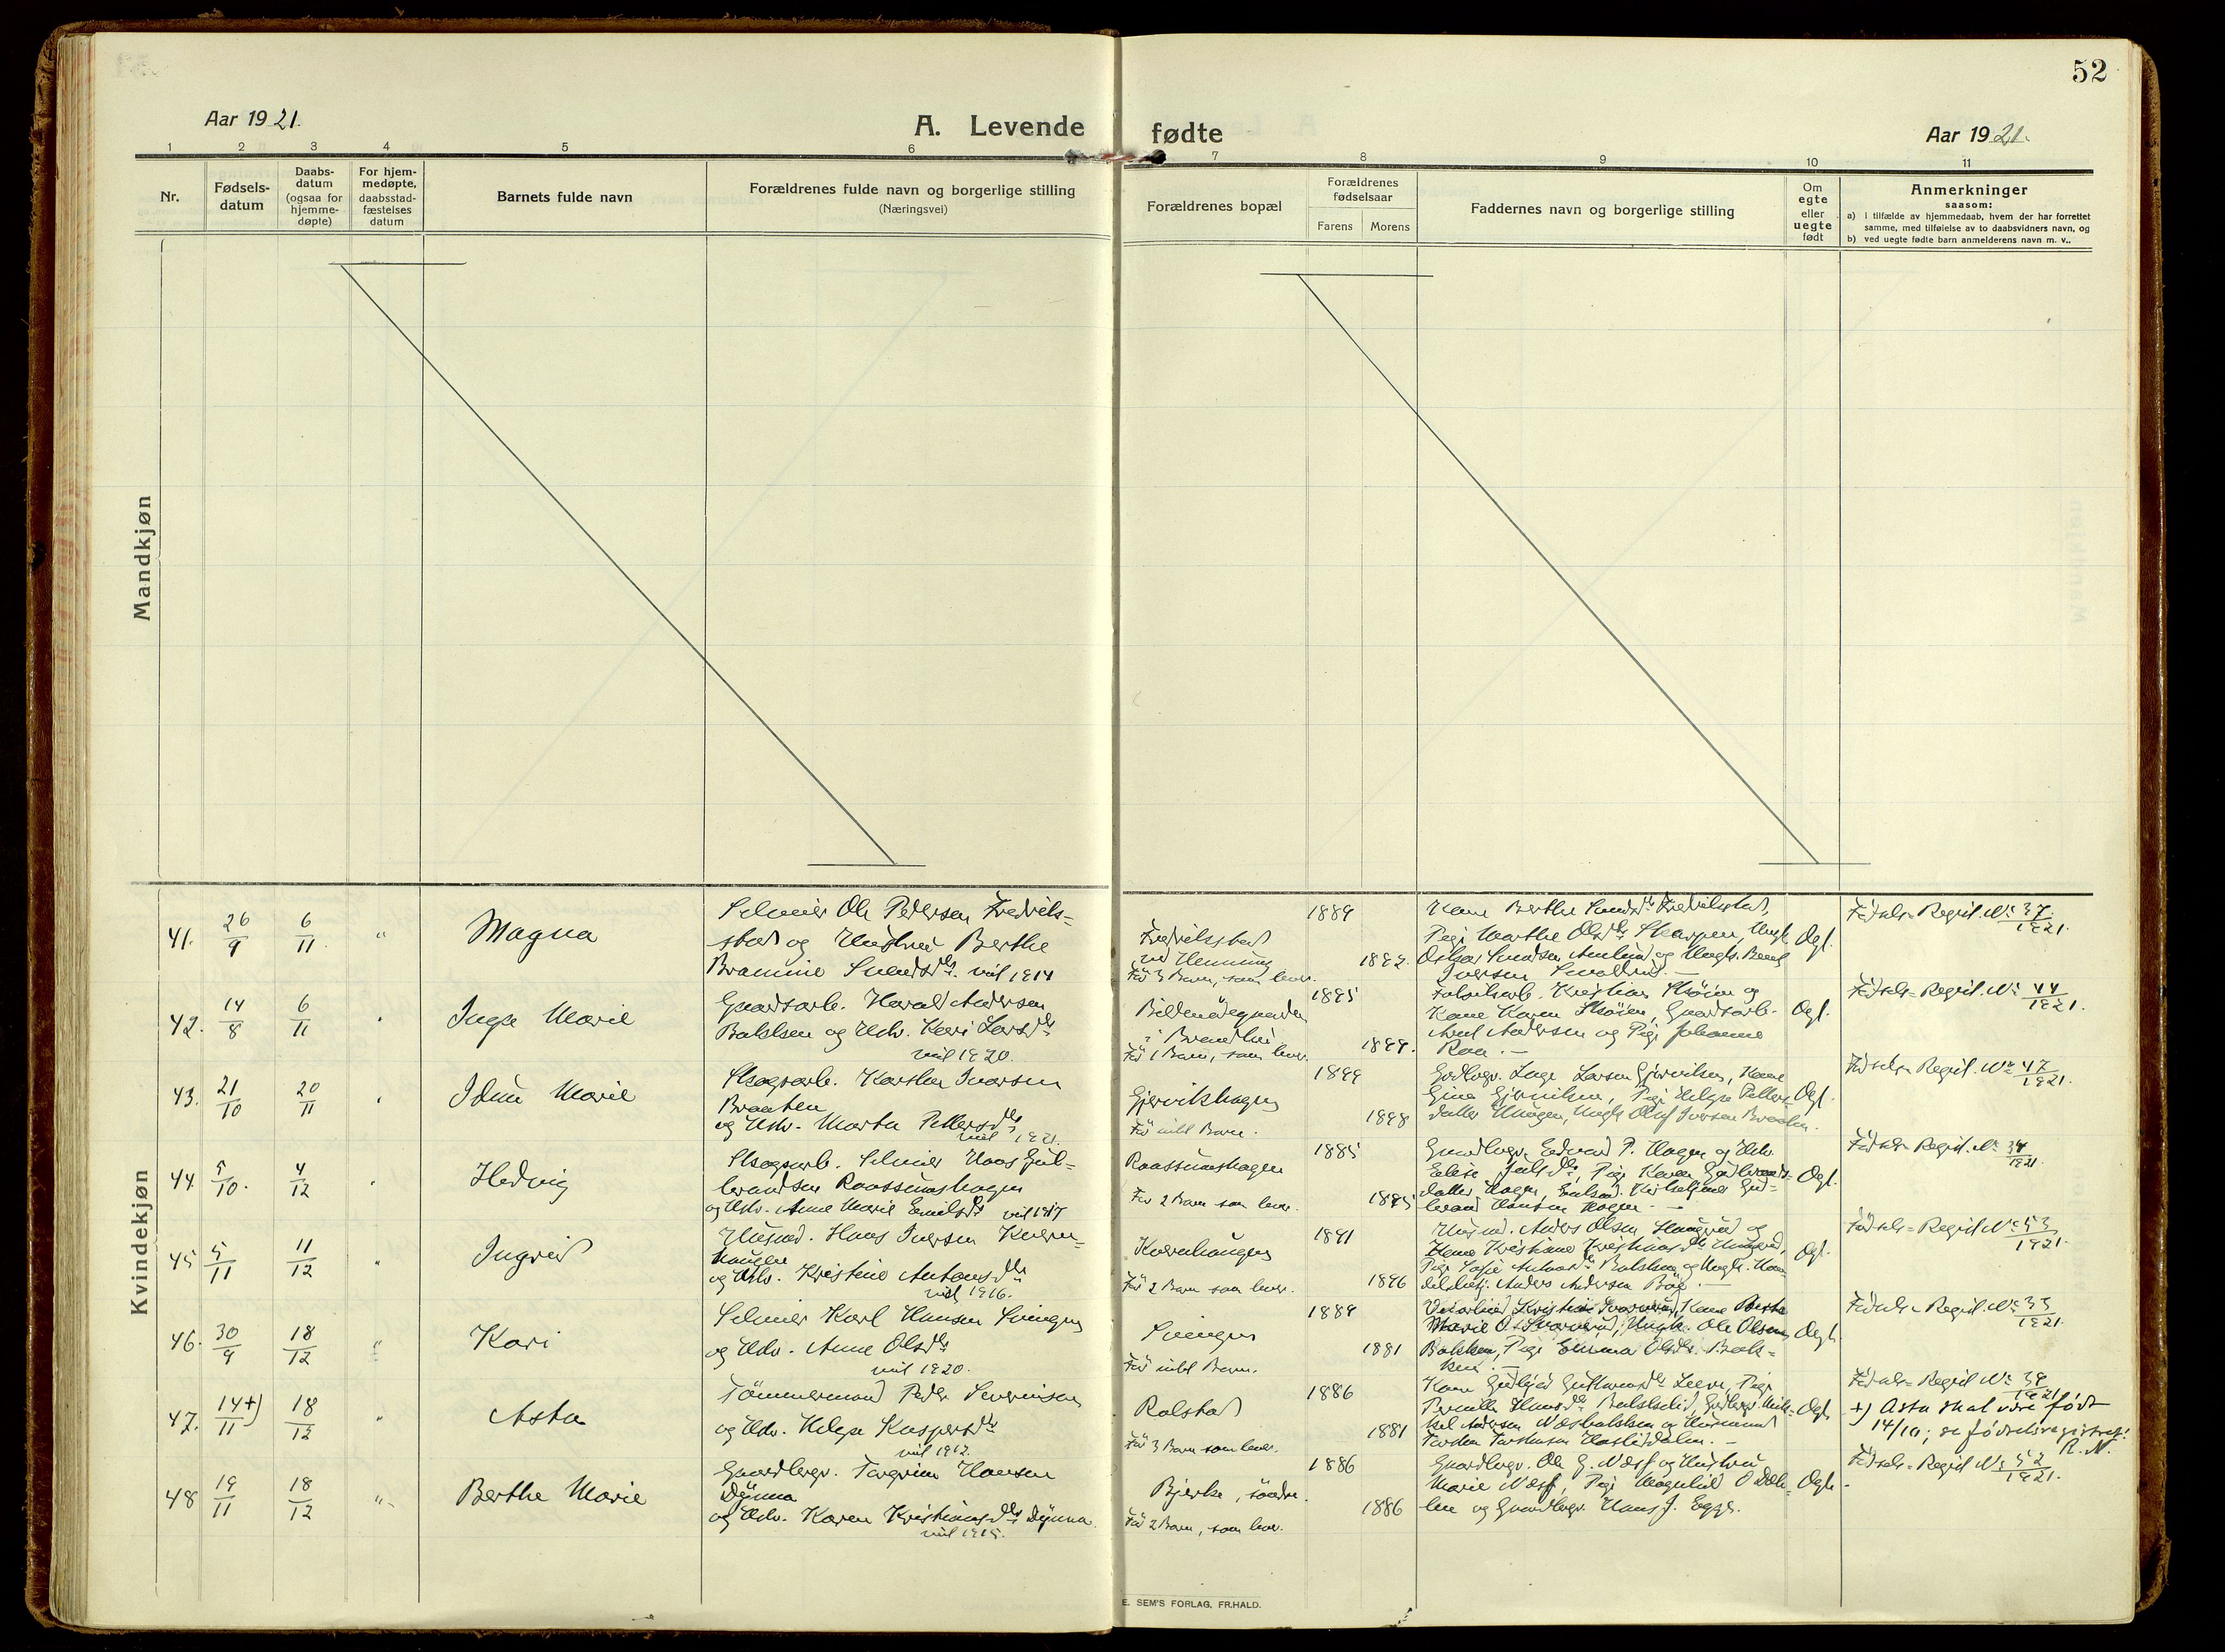 52
Aar 1921.
A. Levende
fødte
Aar 1921.
1 2 3 4 5 6 7 8 9 10 11
Nr.
Fødsels-
datum
Daabs-
datum
(ogsaa for
hjemme-
døpte)
For hjem-
medøpte,
daabsstad-
fæstelses
datum
Barnets fulde navn
Forældrenes fulde navn og borgerlige stilling
(Næringsvei)
Forældrenes bopæl
Forældrenes
fødselsaar
Farens Morens
Faddernes navn og borgerlige stilling
Om
egte
eller
uegte
født
Anmerkninger
saasom:
a) i tilfælde av hjemmedaab, hvem der har forrettet
samme, med tilføielse av to daabsvidners navn, og
b) ved uegte fødte barn anmelderens navn m. v..
Mandkjøn
Kvindekjøn
41. 26/9 6/11. " Magna
Selmer Ole Pedersen Fredriks-
stad og Hustru Berthe
Bramine Svendsdtr. viet 1914
Fredriksstad
ved Henning
Før 3 Barn, som lever.
1889
1892.
Kone Berthe Fredriksstad,
Pige Marthe Olsdtr Ungk.
Oskar og Ungk. Bernt
Iversen
Egt.
Fødsels-Regist. No 37/1921.
42. 14/8 6/11 " Inga Marie
Gaardsarb. Harald Andersen
Bakken og Hstr. Kari Larsdtr
viet 1920.
i Brandbu
Før 1 Barn, som lever.
1895
1899.
Fabrikarb. Kristian og
Kone Karen Gaardsarb.
Arnt Andersen og Pige Johanne
Roa. -
Egt.
Fødsels-Regist. No 44/1921.
43. 21/10 20/11 " Idun Marie
Skogsarb. Karsten Iversen
Braaten
og Hstr. Marta Pettersdtr
viet 1921.
Gjervikshagen
Før intet Barn.
1899
1898
Lars Larsen Gjerviken, Kone
Gina Gjerviken, Pige Helga Petters-
datter Hagen, Ungk Oluf Iversen Braaten.
Egt.
Fødsels-Regist. No 47/1921.
44 5/10. 4/12 " Hedvig
Skogsarb. Selmer Hans Gul-
brandsen Raassumshagen
og Hstr. Anne Marie Emilsdtr viet 1917
Raassumshagen
Før 2 Barn som lever.
1885
1895
Gaardbgr. Edvard P. Hagen og Hstr.
Elise Pige Karen Gudbrands-
datter Hagen,
brand Hansen Hagen. -
Egt.
Fødsels-Regist. No 34/1921.
45 5/11 11/12 " Ingrid
Husmd. Hans Iversen Kvern-
haugen
og Hstr. Kristine Antonsdtr
viet 1916.
Kvernhaugen
Før 2 Barn som lever.
1891
1896
Husmd. Anders Olsen og
Kone Kristiane Kristiansdtr
Pige Sofie Antonsdtr Bakken og Ungk. Han-
delsbetj. Anders Andersen -
Egt.
Fødsels-Regist No 53/1921.
46. 30/9 18/12 " Kari
Selmer Karl Hansen Svingen
og Hstr. Anne Olsdtr
viet 1920.
Svingen
Før intet Barn.
1889
1881
Kristian Kone Berta
Marie O. Ungk. Ole Olsen
Bakken, Pige Emma Olsdtr. Bak-
ken. -
Egt.
Fødsels-Regist No 33/1921.
47. 14+)/11 18/12 " Asta
Tømmermand Peder Severinsen
og Hstr. Helga Kaspersdtr
viet 1912.
Rolstad
Før 3 Barn som lever.
1886
1881
Kone Pige
Pernille Hansdtr
Andersen Næsbakken og Husmand
Torsten Torstensen -
Egt.
Fødsels-Regist No 39/1921
+) Asta skal være født
14/10; se fødselsregistret!
R. N.
48 19/11 18/12 " Berthe Marie
Gaardbrgr. Torgrim Hansen
Dynna
og Hstr. Karen Kristiansdtr Dynna
viet 1915.
Bjerke, søndre.
Før 2 Barn, som lever.
1886
1886
Gaardbrgr. Ole G. Næss og Hustru
Marie Næss, Pige Magnhild O Dæh-
len og Gaardbrgr. Hans J. Egge.
Egt.
Fødsels-Regist No 52/1921.
E. SEM'S FORLAG, FR.HALD.